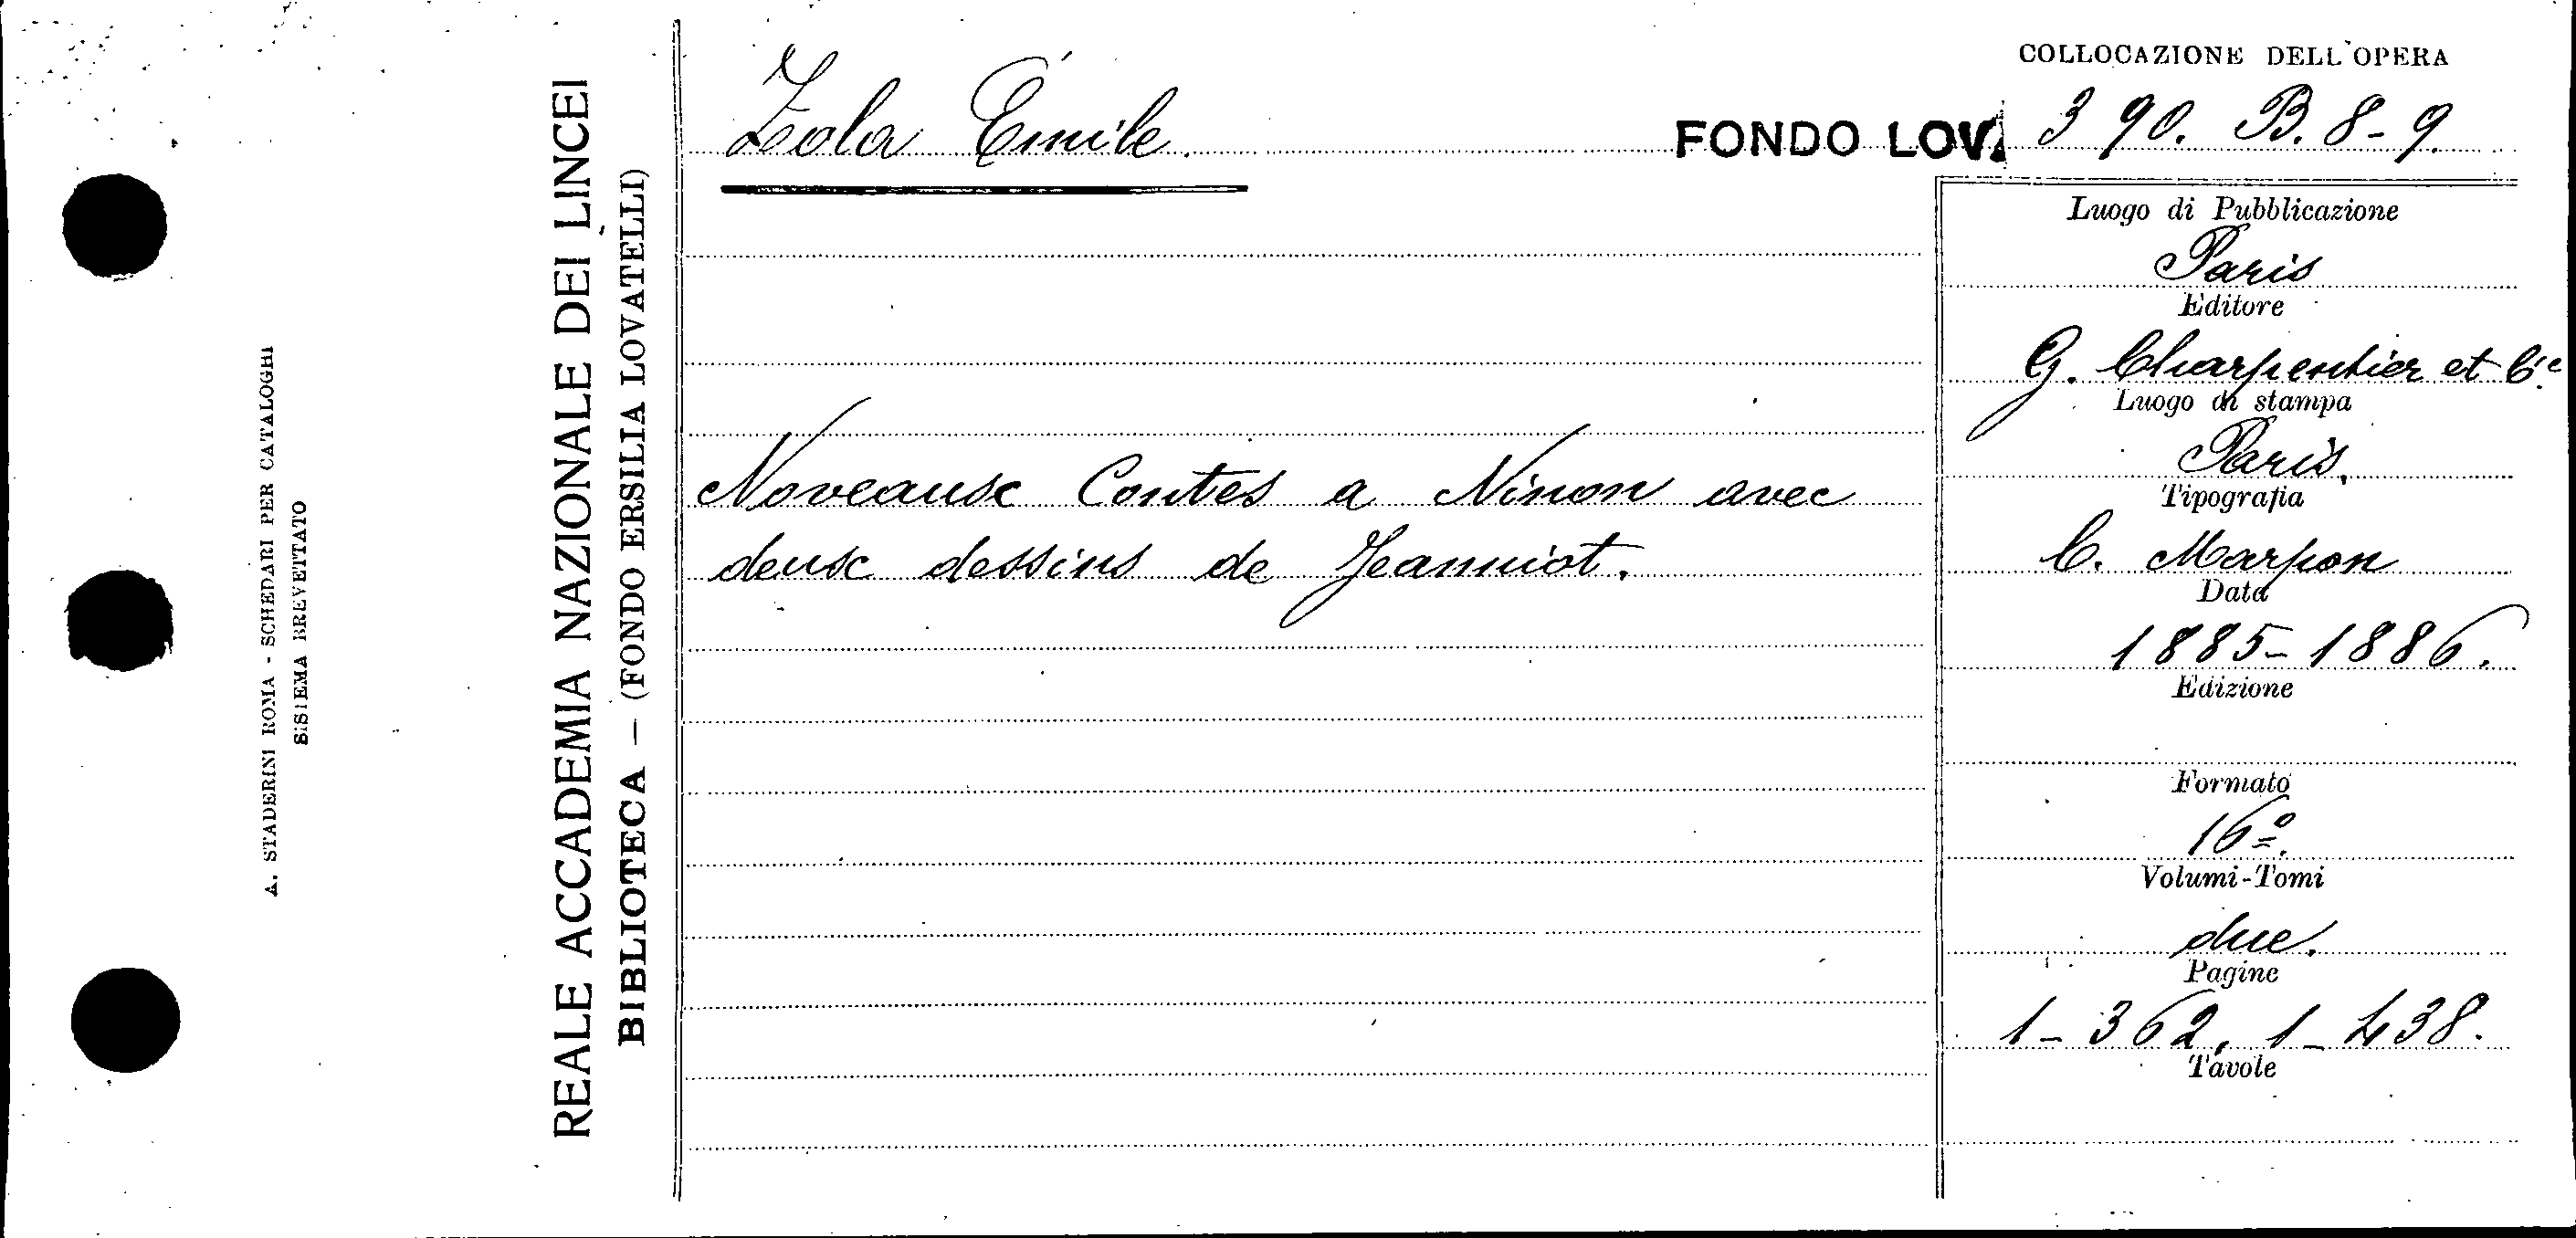 A. STADERINI ROMA - SCHEDARI PER CATALOGHI
SISTEMA BREVETTATO
REALE ACCADEMIA NAZIONALE DEI LINCEI
BIBLIOTECA — (FONDO ERSILIA LOVATELLI)
Zola Émile.
Noveaux Contes a Ninon avec
deux dessins de Jeanniot.
COLLOCAZIONE DELL'OPERA
FONDO LOV. 390. B. 8-9.
Luogo di Pubblicazione
Paris
Editore
G. Charpentier et C.ie
Luogo di stampa
Paris.
Tipografia
C. Marpon
Data
1885-1886.
Edizione
Formato
16º.
Volumi-Tomi
due.
Pagine
1-362, 1-438.
Tavole